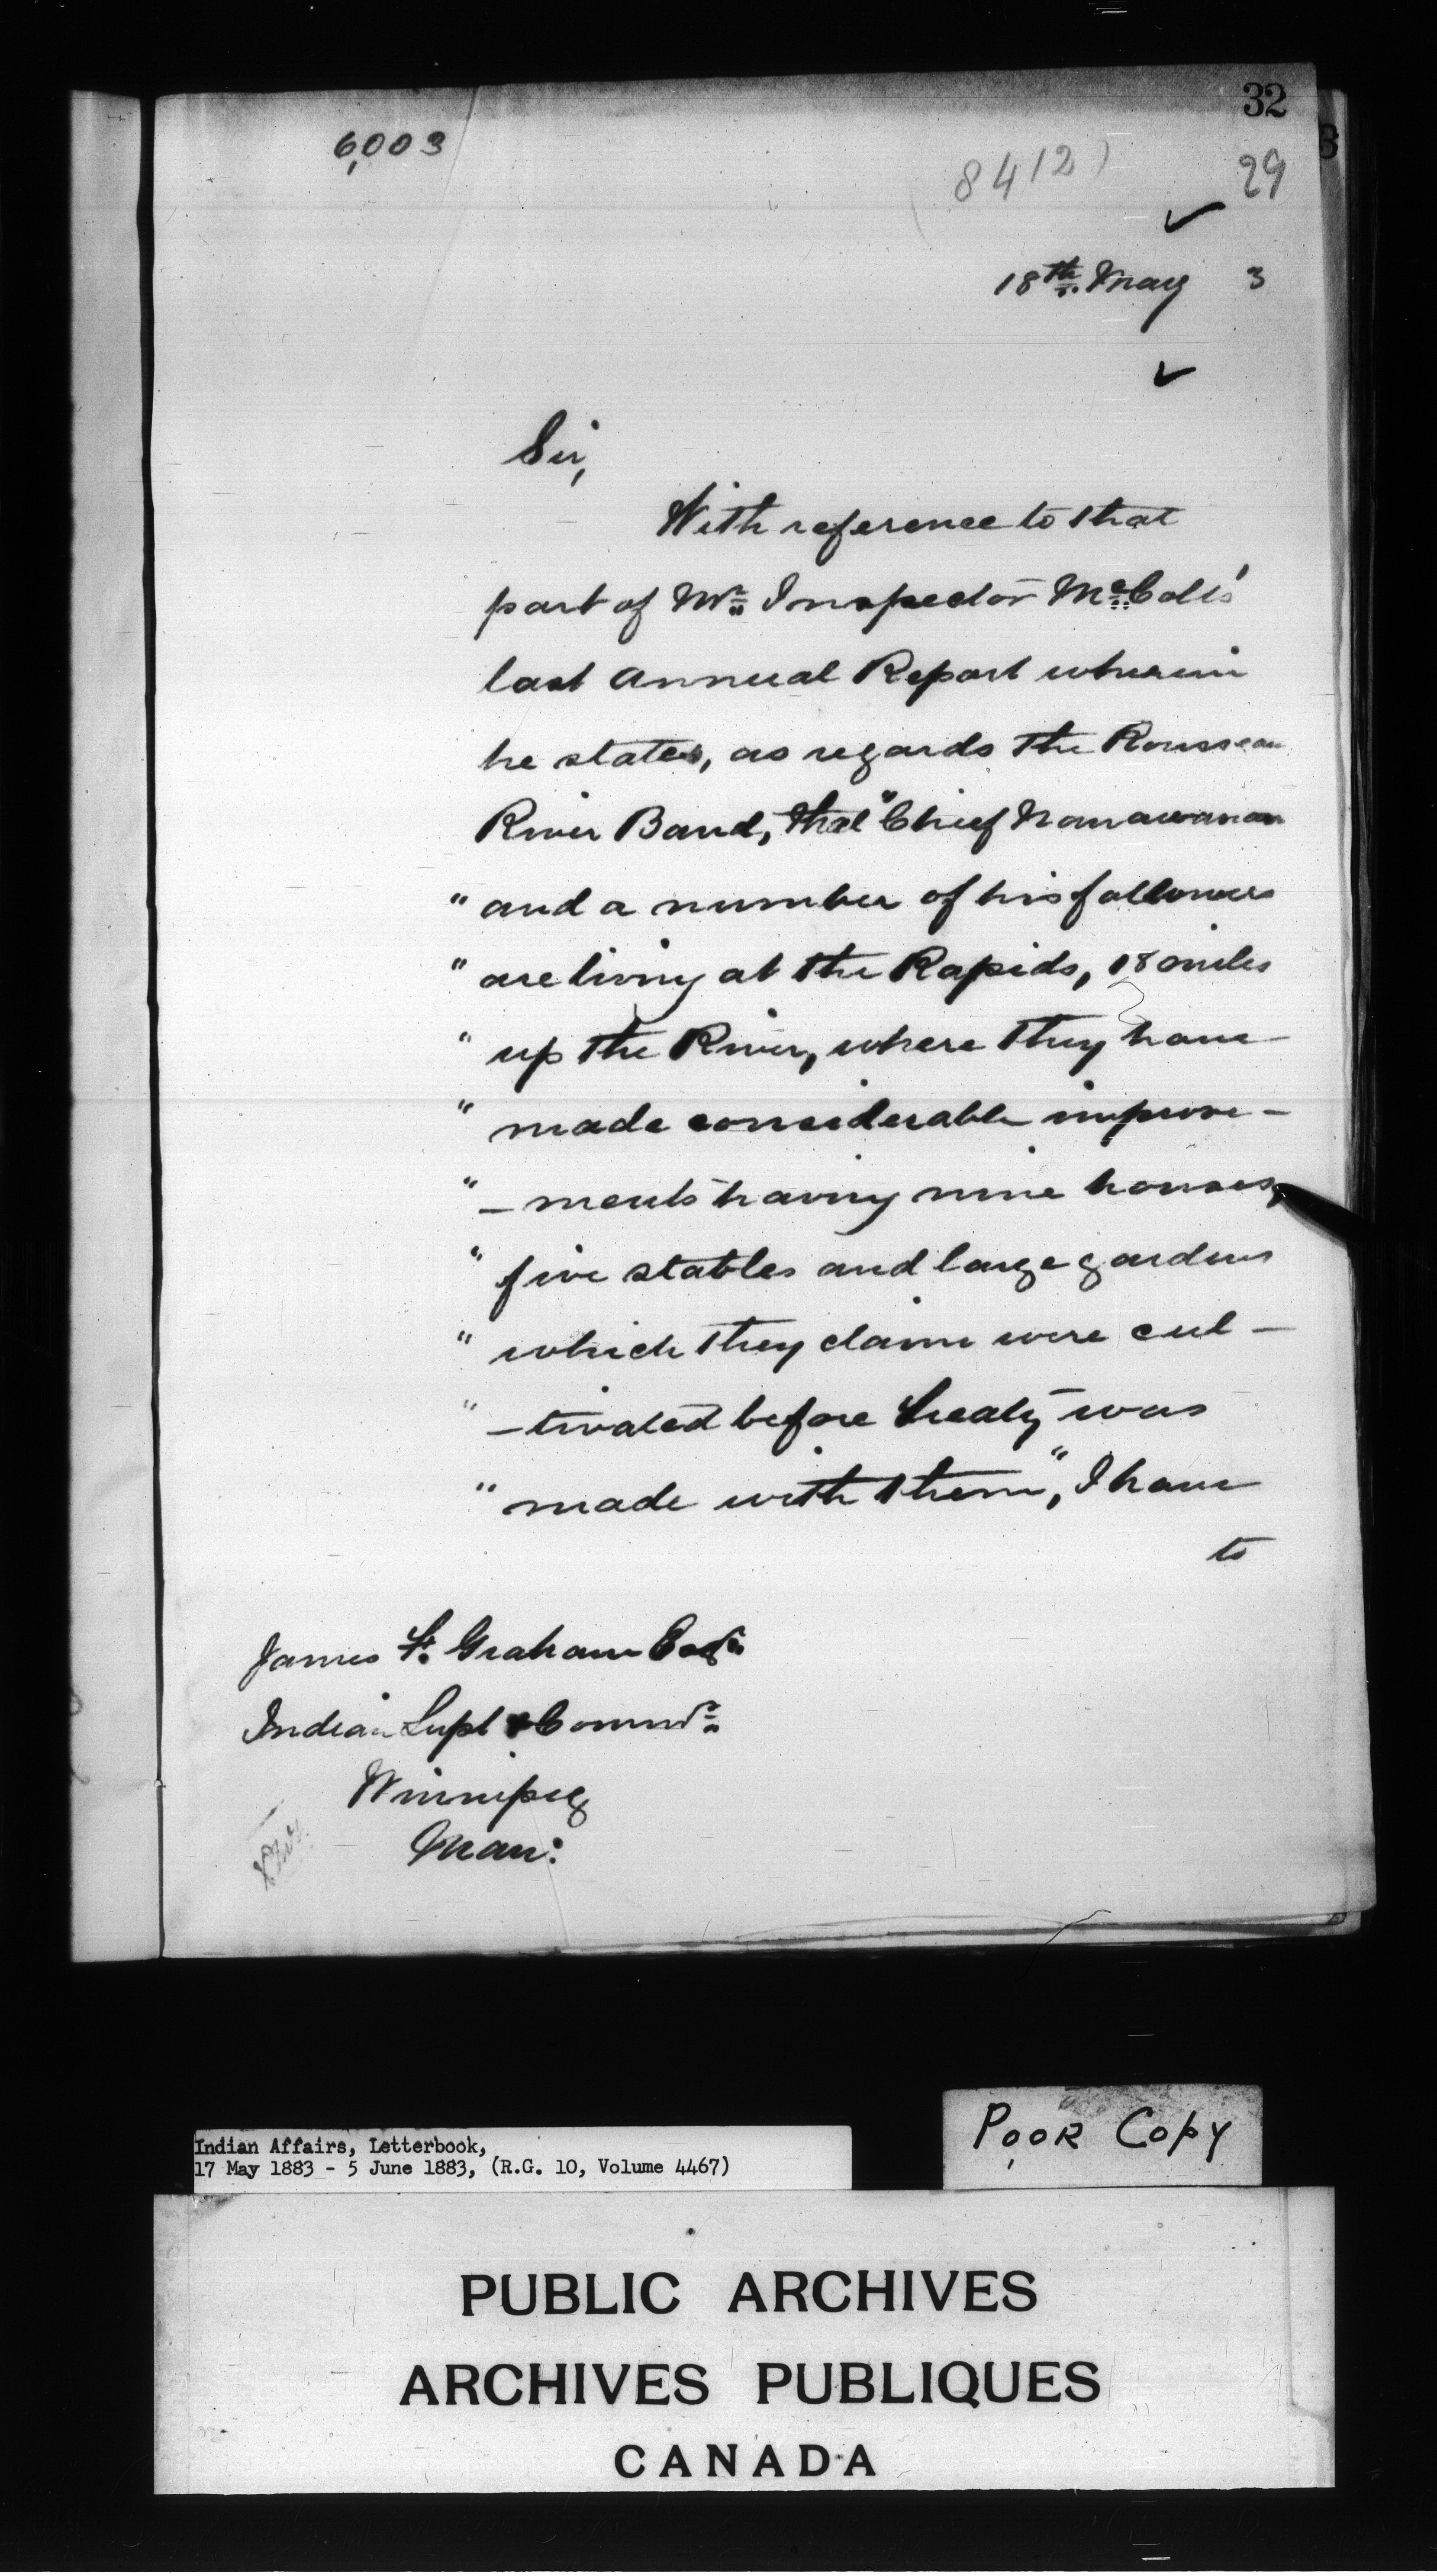 32
6,003
8412)
29
18th. May 3
Sir,
With reference to that
part of Mr. Inspector McColl's
last Annual Report wherein
he states, as regards the Rousseau
River Band, that "Chief Nanawanan
" and a number of his followers
" are living at the Rapids, 18 miles
" up the River, where they have
" made considerable improve-
" -ments having nine houses,
" five stables and large gardens
" which they claim were cul-
" -tivated before treaty was
" made with them", I have
to
James F. Graham Esqr.
Indian Supt & Commr.
Winnipeg
Man:
Poor Copy
Indian Affairs, Letterbook,
17 May 1883 - 5 June 1883, (R.G. 10, Volume 4467)
PUBLIC ARCHIVES
ARCHIVES PUBLIQUES
CANADA